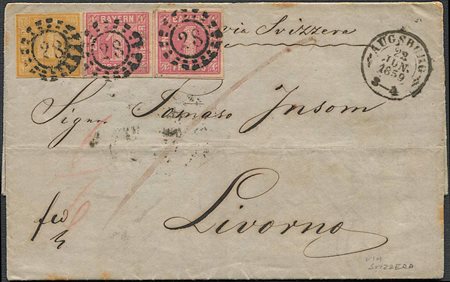 BAYERN
28 28 28
via Svizzera
AUGSBURG
28
JUN.
1859
Sigr Tomaso Insom
Livorno
VIA
SVIZZERA